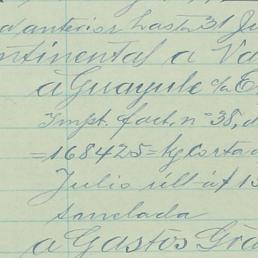 anterior hasta 31 Ju
ntinental a Va
a Guayule c/a E
Impt. fact. nº 38, d
=168425= kg corta
Julio últ. a $ 15
tonelada
a Gastos Gra